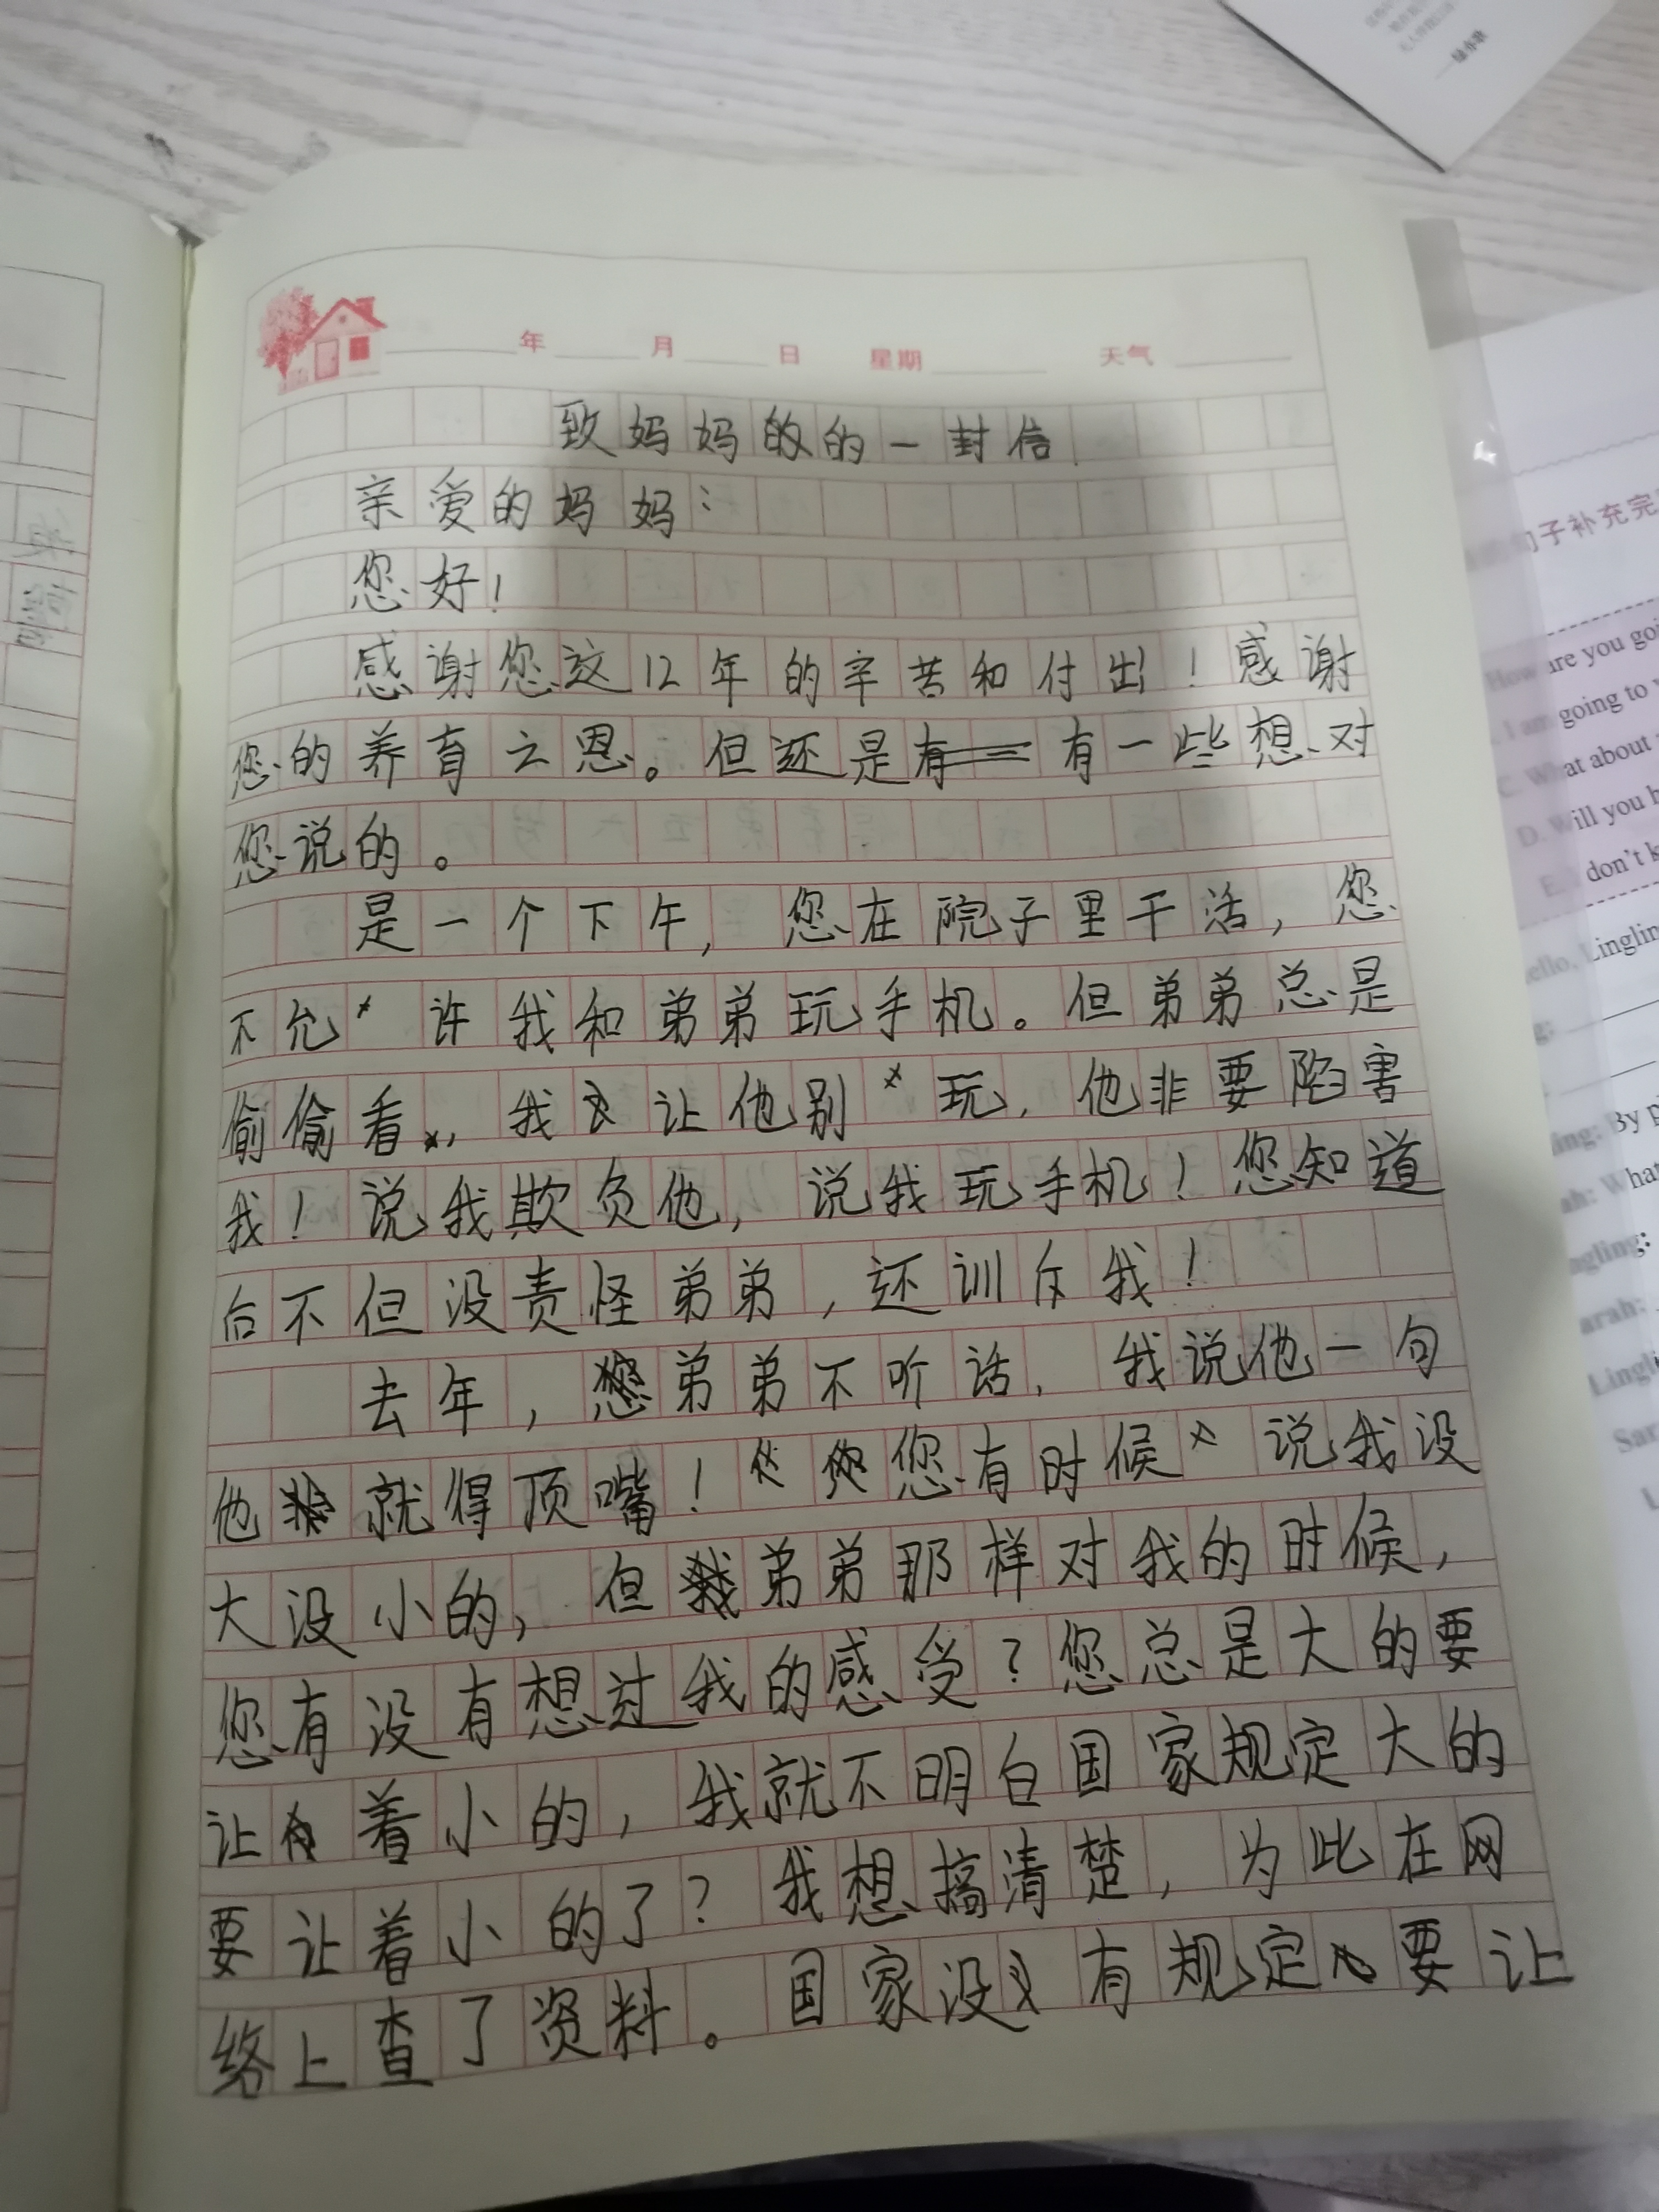 年 月 日 星期 天气
致妈妈的的一封信
亲爱的妈妈：
您好！
感谢您这12年的辛苦和付出！感谢
您的养育之恩。但还是有一些想对
您说的。
是一个下午，您在院子里干活，您
不允许我和弟弟玩手机。但弟弟总是
偷偷看，我让他别玩，他非要陷害
我！说我欺负他，说我玩手机！您知道
后不但没责怪弟弟，还训斥我！
去年，弟弟不听话，我说他一句
他就得顶嘴！您有时候说我没
大没小的，但弟弟那样对我的时候，
您有没有想过我的感受？您总是大的要
让着小的，我就不明白国家规定大的
要让着小的了？我想搞清楚，为此在网
络上查了资料。国家没有规定要让
句子补充完
How are you goi
I am going to
C. What about
D. Will you h
E. I don't k
ello, Linglin
By p
What
ngling:
arah:
Lingli
Sar